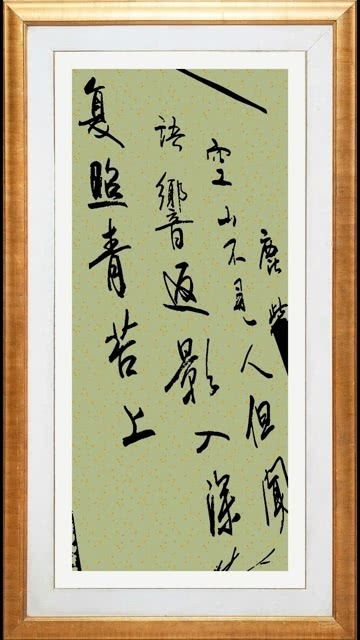 鹿柴
空山不見人但聞人
語響返影入深
复照青苔上